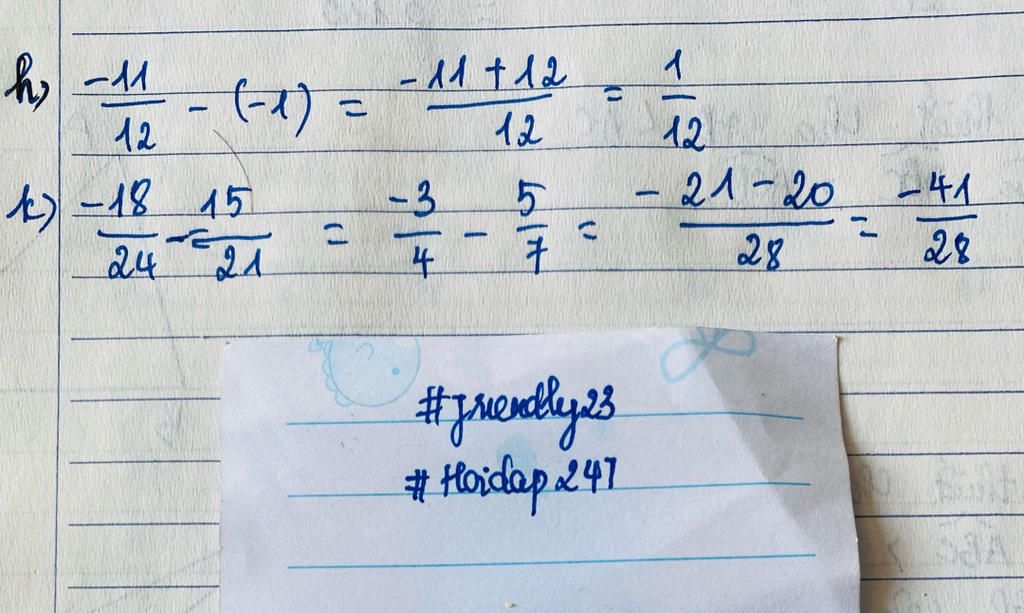 h) -11/12 - (-1) = -11+12/12 = 1/12
k) -18/24 - 15/21 = -3/4 - 5/7 = -21-20/28 = -41/28
#friendly23
#Hoidap247